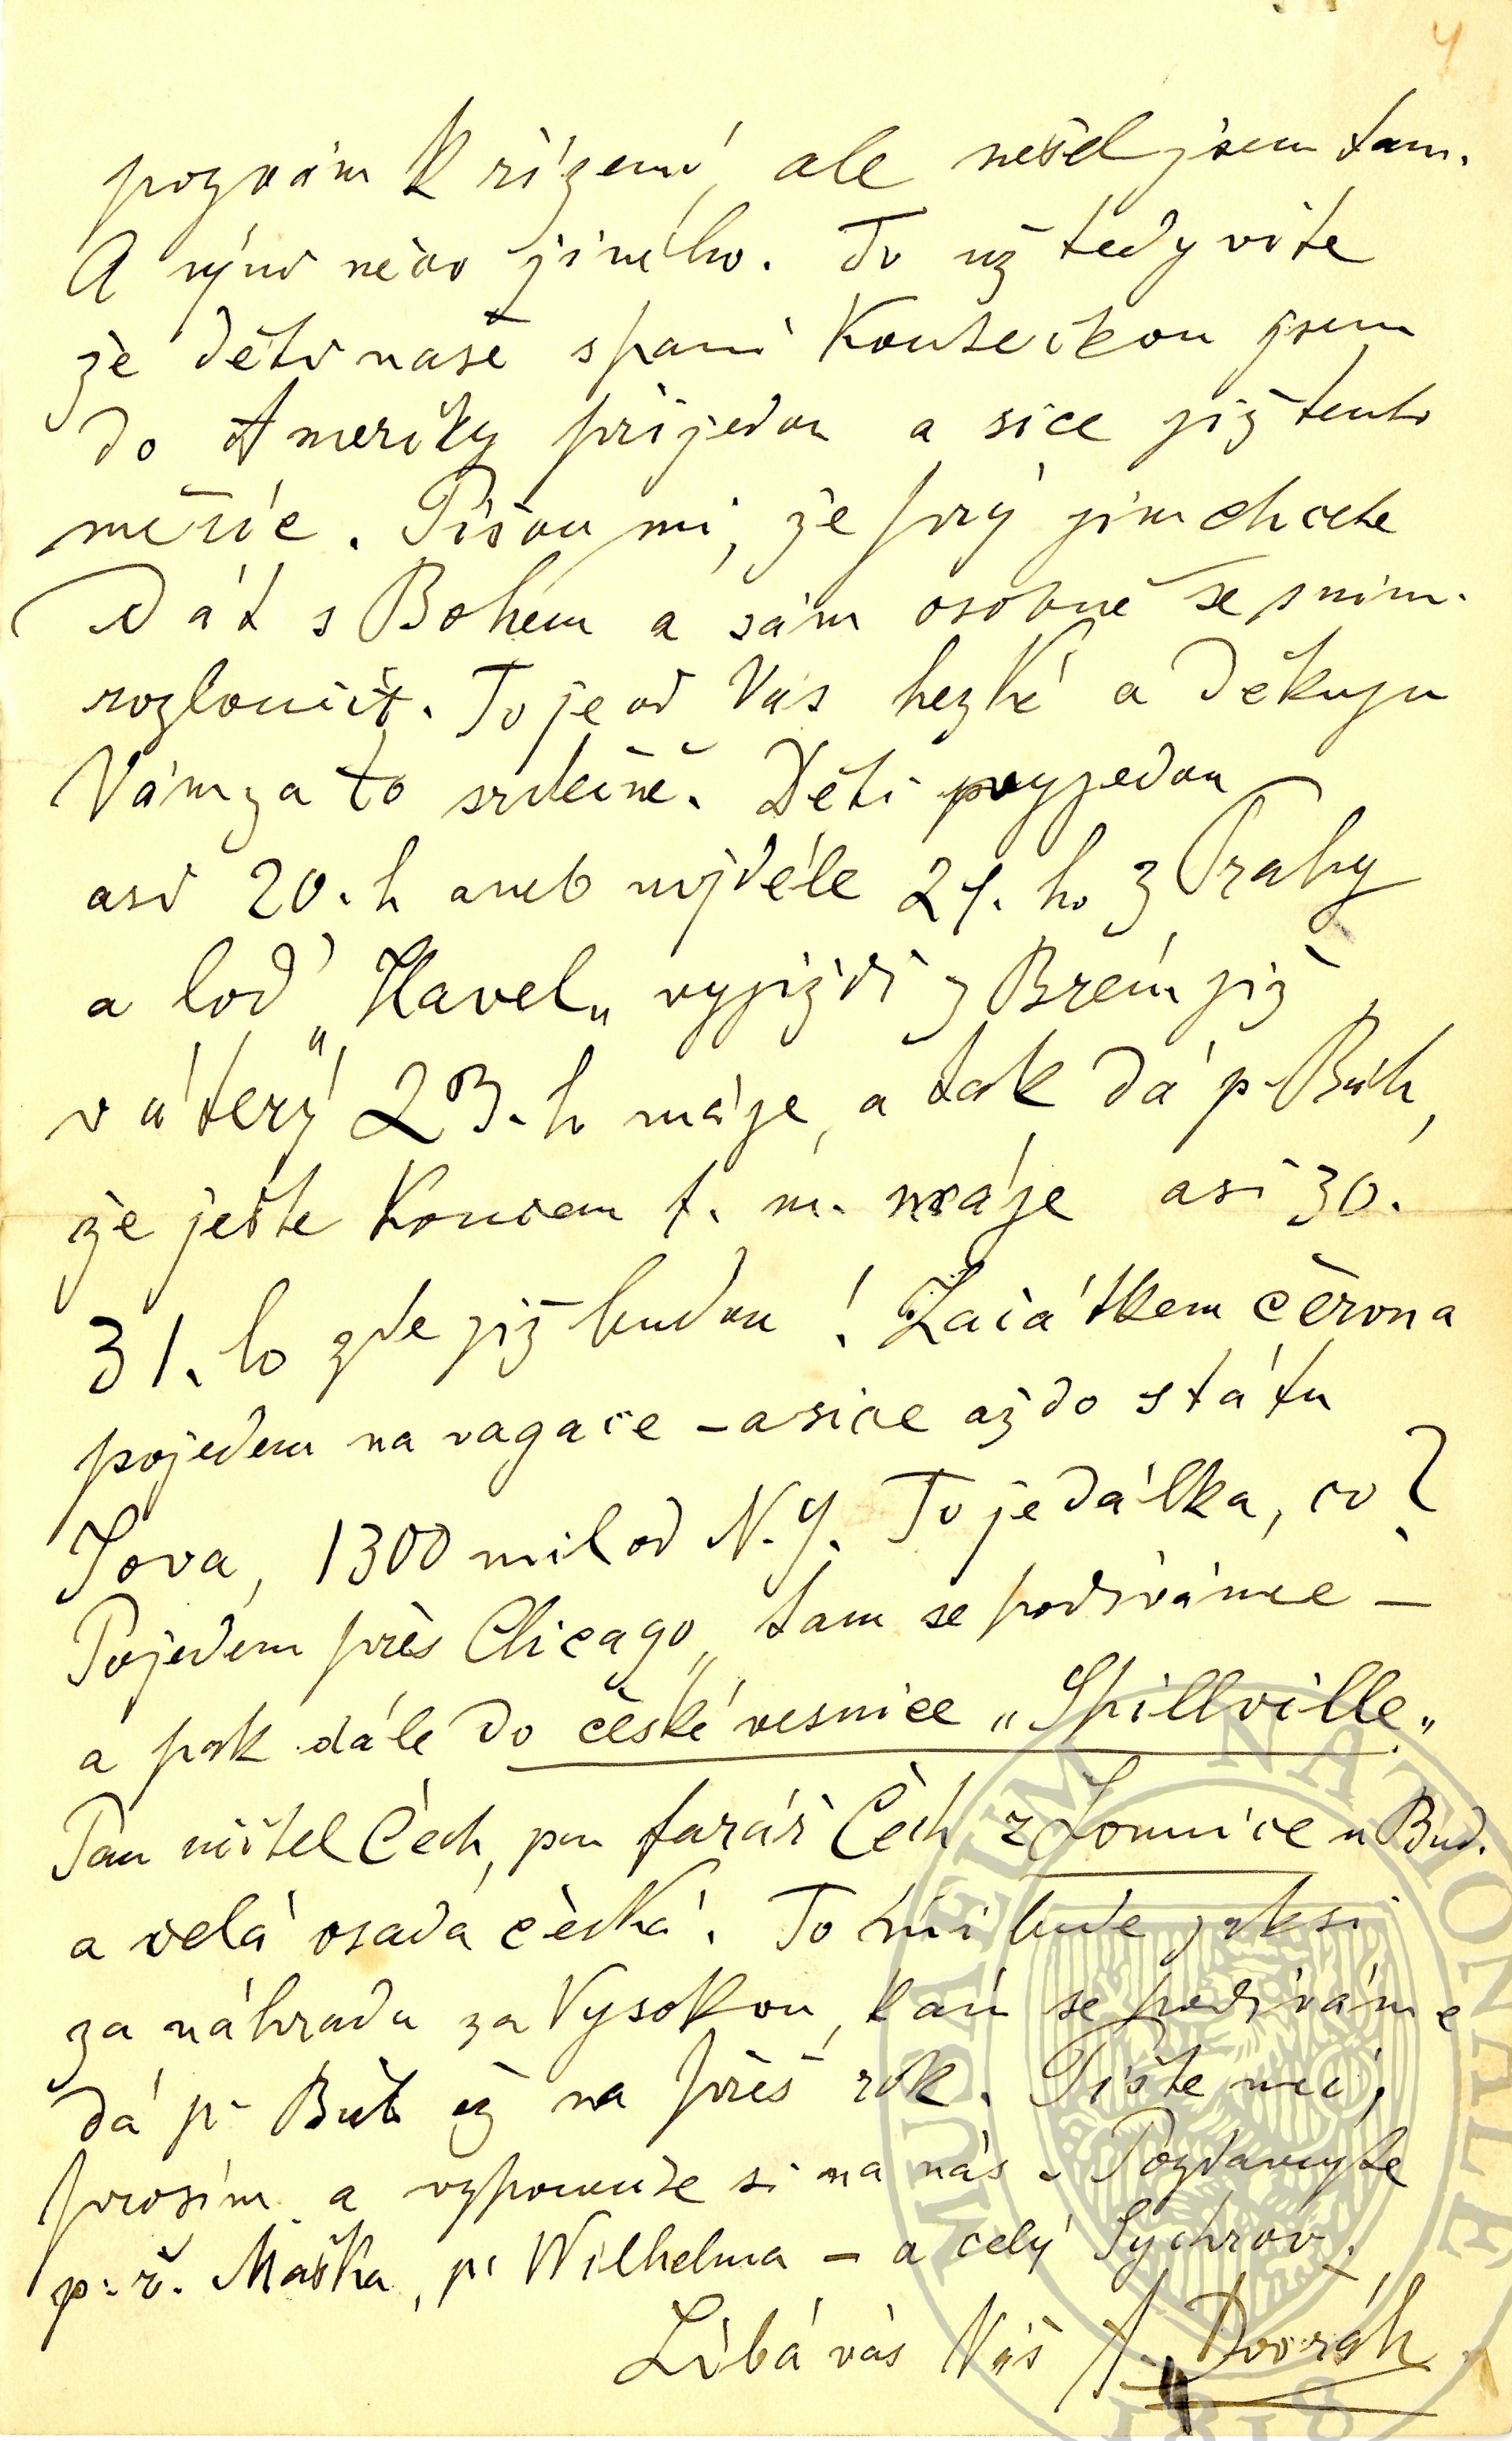 4
pozván k řízení, ale nešel jsem tam.
A nyní něco jiného. To už tedy víte
že děti naše s paní Kouteckou jsem
do Ameriky přijedou a sice již tento
měsíc. Píšou mi, že prý jim chcete
dát s Bohem a sám osobně se s nim.
rozloučit. To je od Vás hezké a děkuju
Vám za to srdečně. Děti vyjedou
asi 20. h aneb nejdéle 21. ho z Prahy
a loď „Havel„ vyjíždí z Brém již
v úterý 23. h máje, a tak dá p. Bůh,
že ještě koncem t. m. máje asi 30.
31. ho zde již budou! Začátkem června
pojedem na vagace – a sice až do státu
Jova, 1300 mil od N. Y. To je dálka, co?
Pojedem přes Chicago, tam se podíváme –
a pak dále do české vesnice „Spillville„
Pan učitel Čech, pan farář Čech z Lomnice u Bud.
a celá osada česká. To mi bude jaksi
za náhradu za Vysokou, kam se podíváme
dá p. Bůh až na přes rok. Pište mi,
prosím a vzpomeňte si na nás. Pozdravujte
p. ř. Maška, p. Wilhelma – a celý Sychrov.
Líbá vás Váš A. Dvořák
MUSAEUM NATIONALE
1818